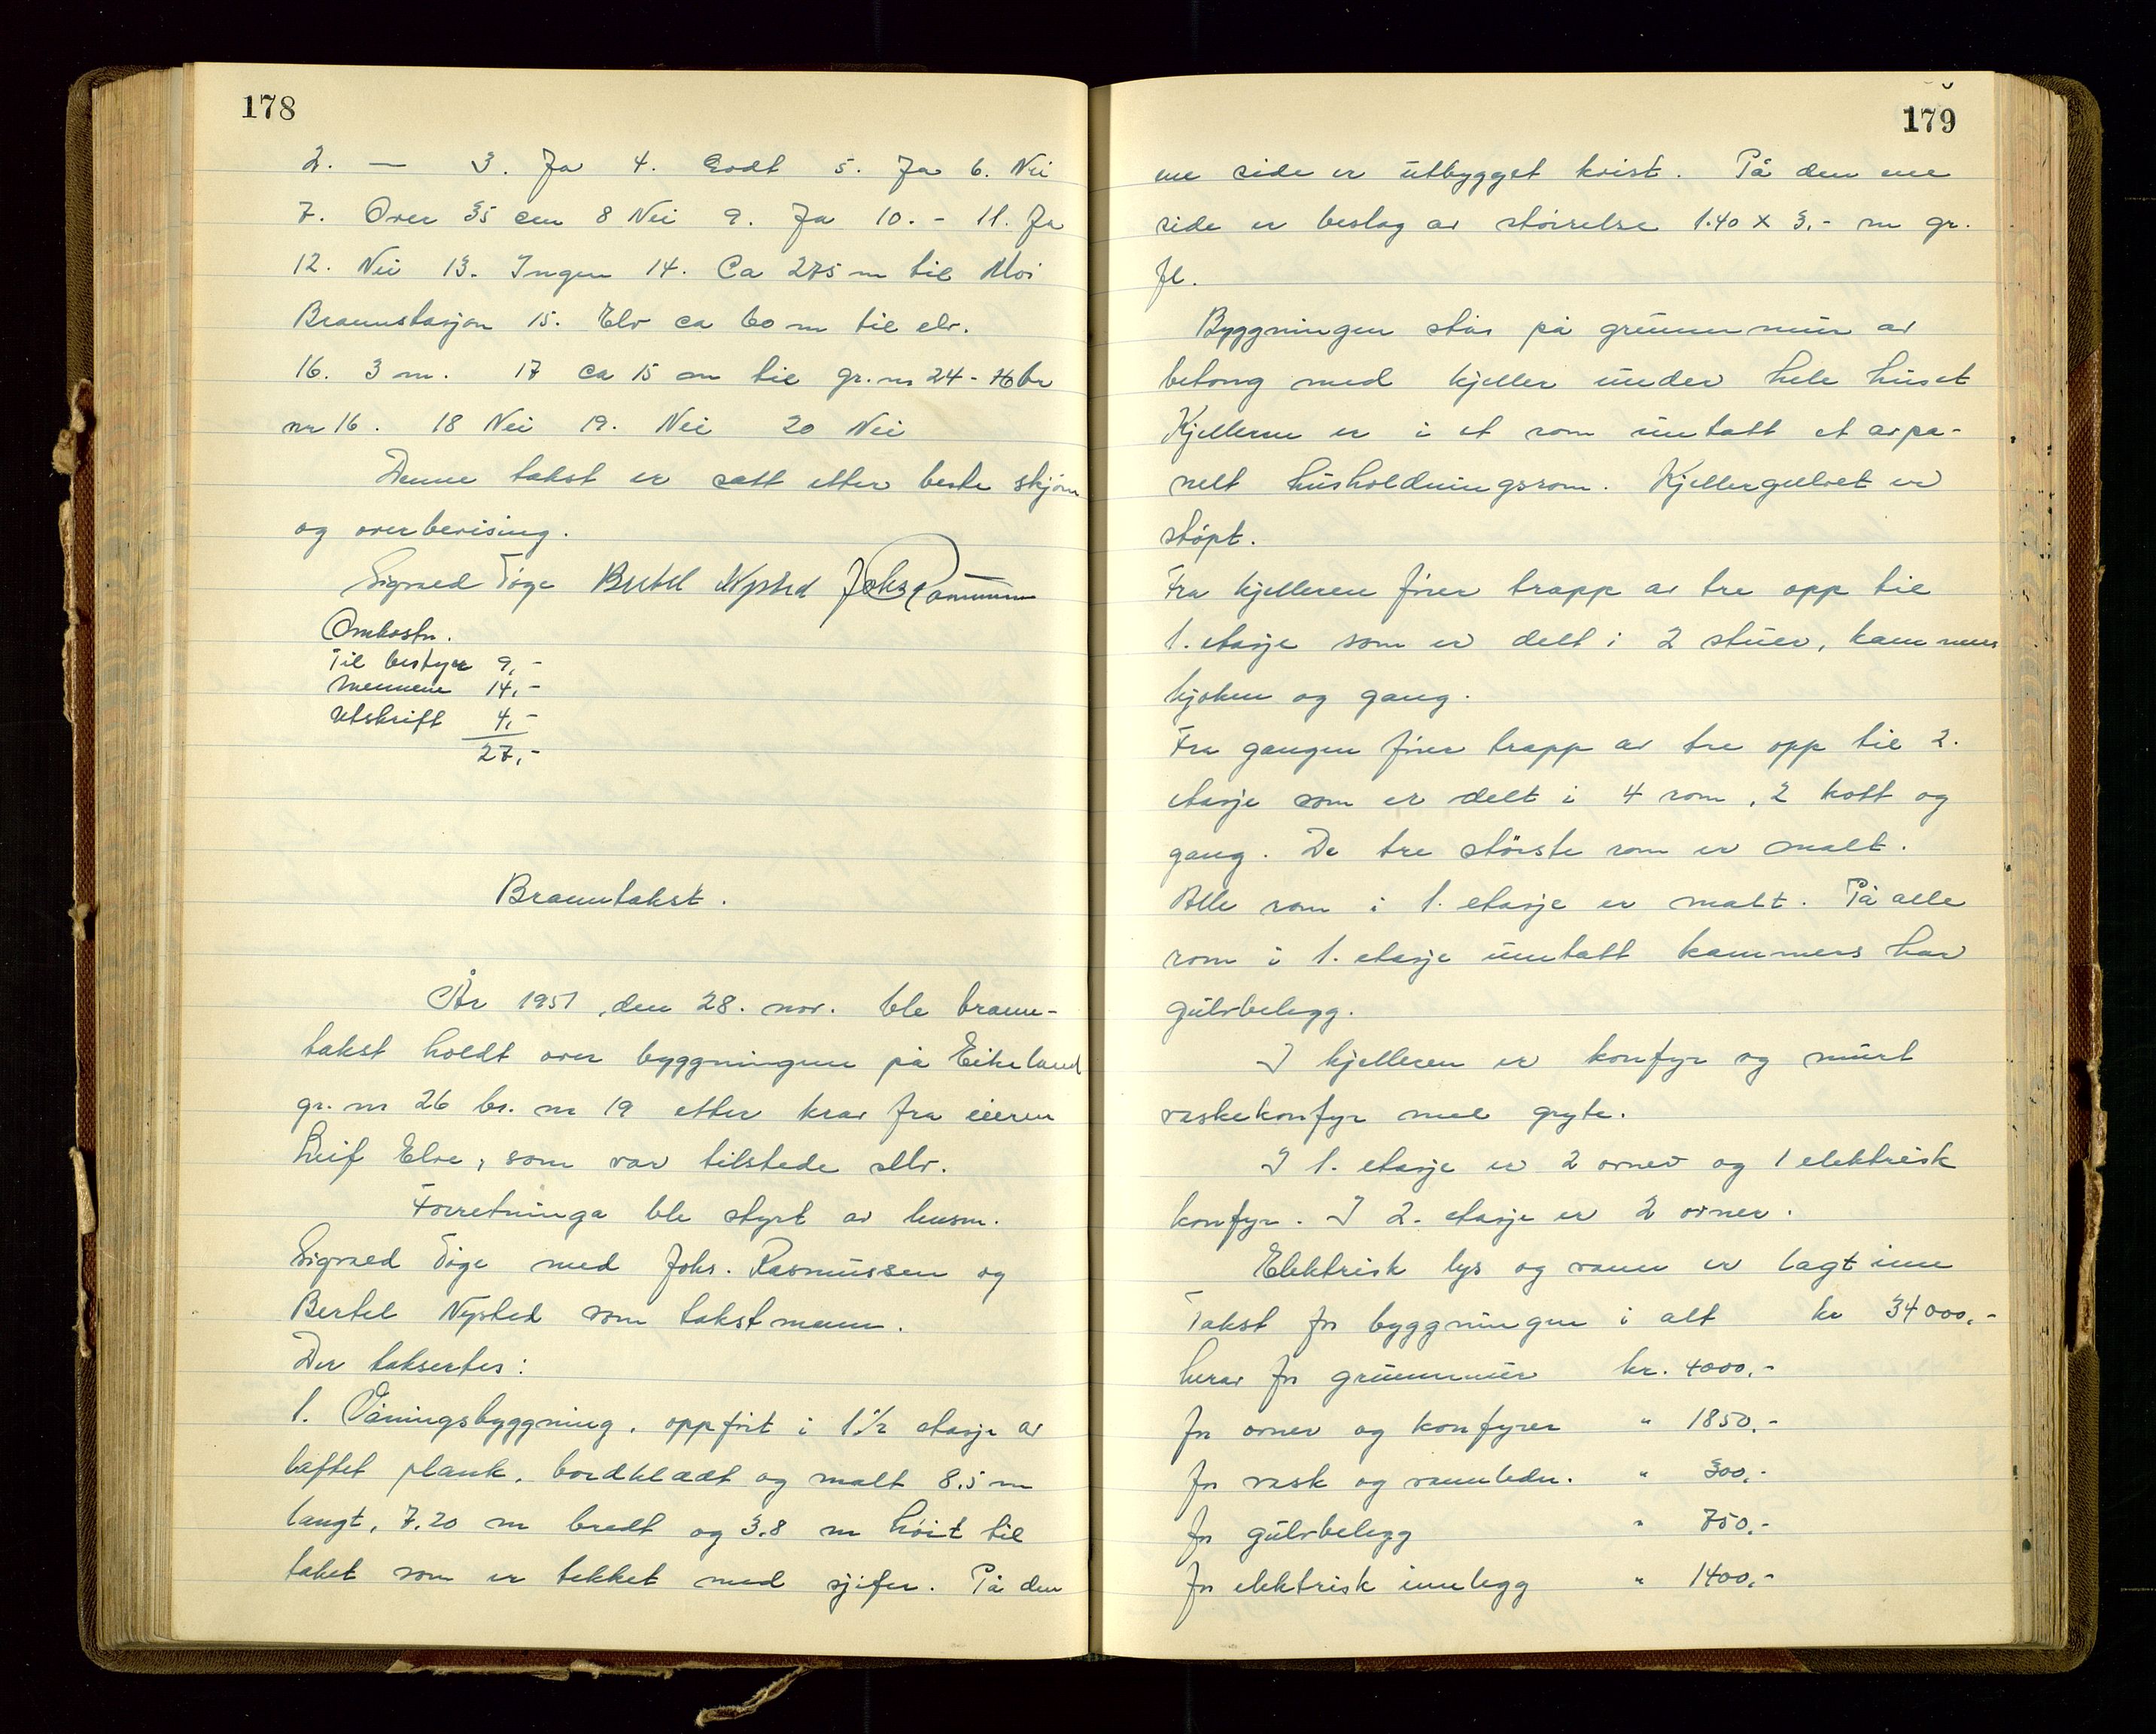 178
2. — 3. Ja 4. Godt 5. Ja 6. Nei
7. Over 35 cm 8 Nei 9. Ja 10. - 11. Ja
12. Nei 13. Ingen 14. Ca 275 m til Moi
Brannstasjon 15. Elv ca 60 m til elv.
16. 3 m. 17 ca 15 m til gr. nr 24 - br
nr 16. 18 Nei 19. Nei 20 Nei
Denne takst er satt etter beste skjøn
og overbevising.
Sigvald Tøge Bertel Nysted Johs Rasmussen
Omkostn.
Til bestyr 9,-
mennene 14,-
Utskrift 4,-
27,-
Branntakst.
År 1951, den 28. nov. ble brann-
takst holdt over byggningene på Eikeland
gr. nr 26 br. nr 19 etter krav fra eieren
Leif Elve, som var tilstede selv.
Forretninga ble styrt av lensm.
Sigvald Tøge med Johs. Rasmussen og
Bertel Nysted som takstmenn.
Der taksertes:
1. Våningsbyggning, oppført i 1 1/2 etasje av
laftet plank, bordklædt og malt 8.5 m
langt, 7.20 m bredt og 3.8 m høit til
taket som er tekket med sjifer. På den
179
ene side er utbygget kvist. På den ene
side er beslag av størrelse 1.40 x 3,- m gr.
fl.
Byggningen står på grunnmur av
betong med kjeller under hele huset
Kjelleren er i et rom untatt et avpa-
nelt husholdningsrom. Kjellergulvet er
støpt.
Fra kjelleren fører trapp av tre opp til
1. etasje som er delt i 2 stuer, kammers
kjøken og gang.
Fra gangen fører trapp av tre opp til 2.
etasje som er delt i 4 rom, 2 kott og
gang. De tre største rom er malt.
Alle rom i 1. etasje er malt. På alle
rom i 1. etasje untatt kammers har
gulvbelegg.
I kjelleren er komfyr og murt
vaskekomfyr med gryte.
I 1. etasje er 2 ovner og 1 elektrisk
komfyr. I 2. etasje er 2 ovner.
Elektrisk lys og vann er lagt inn
Takst for byggningen i alt kr 34000,-
herav for grunnmur kr. 4000,-
for ovner og komfyrer " 1850,-
for vask og vannledn. " 300,-
for gulvbelegg " 750,-
for elektrisk innlegg " 1400,-